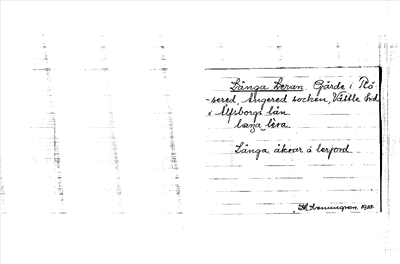 Långa Leran. Gärde i Rö-
sered, Angered socken, Vättle hd
i Älfsborgs län.
laŋa lera
Långa åkrar å lerjord